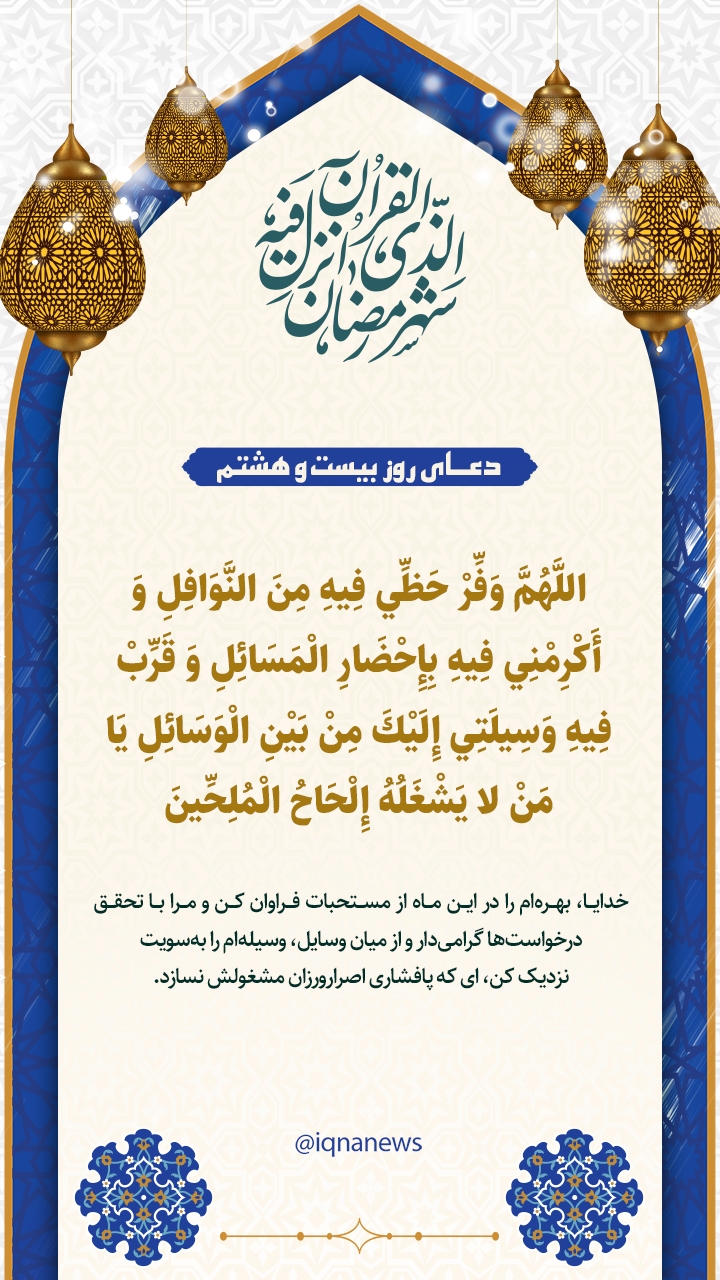 شهر رمضان
الذی انزل فیه
القرآن
دعای روز بیست و هشتم
اللَّهُمَّ وَفِّرْ حَظِّي فِيهِ مِنَ النَّوَافِلِ وَ
أَكْرِمْنِي فِيهِ بِإِحْضَارِ الْمَسَائِلِ وَ قَرِّبْ
فِيهِ وَسِيلَتِي إِلَيْكَ مِنْ بَيْنِ الْوَسَائِلِ يَا
مَنْ لا يَشْغَلُهُ إِلْحَاحُ الْمُلِحِّينَ
خدایا، بهره‌ام را در این ماه از مستحبات فراوان کن و مرا با تحقق
درخواست‌ها گرامی‌دار و از میان وسایل، وسیله‌ام را به‌سویت
نزدیک کن، ای که پافشاری اصرارورزان مشغولش نسازد.
@iqnanews